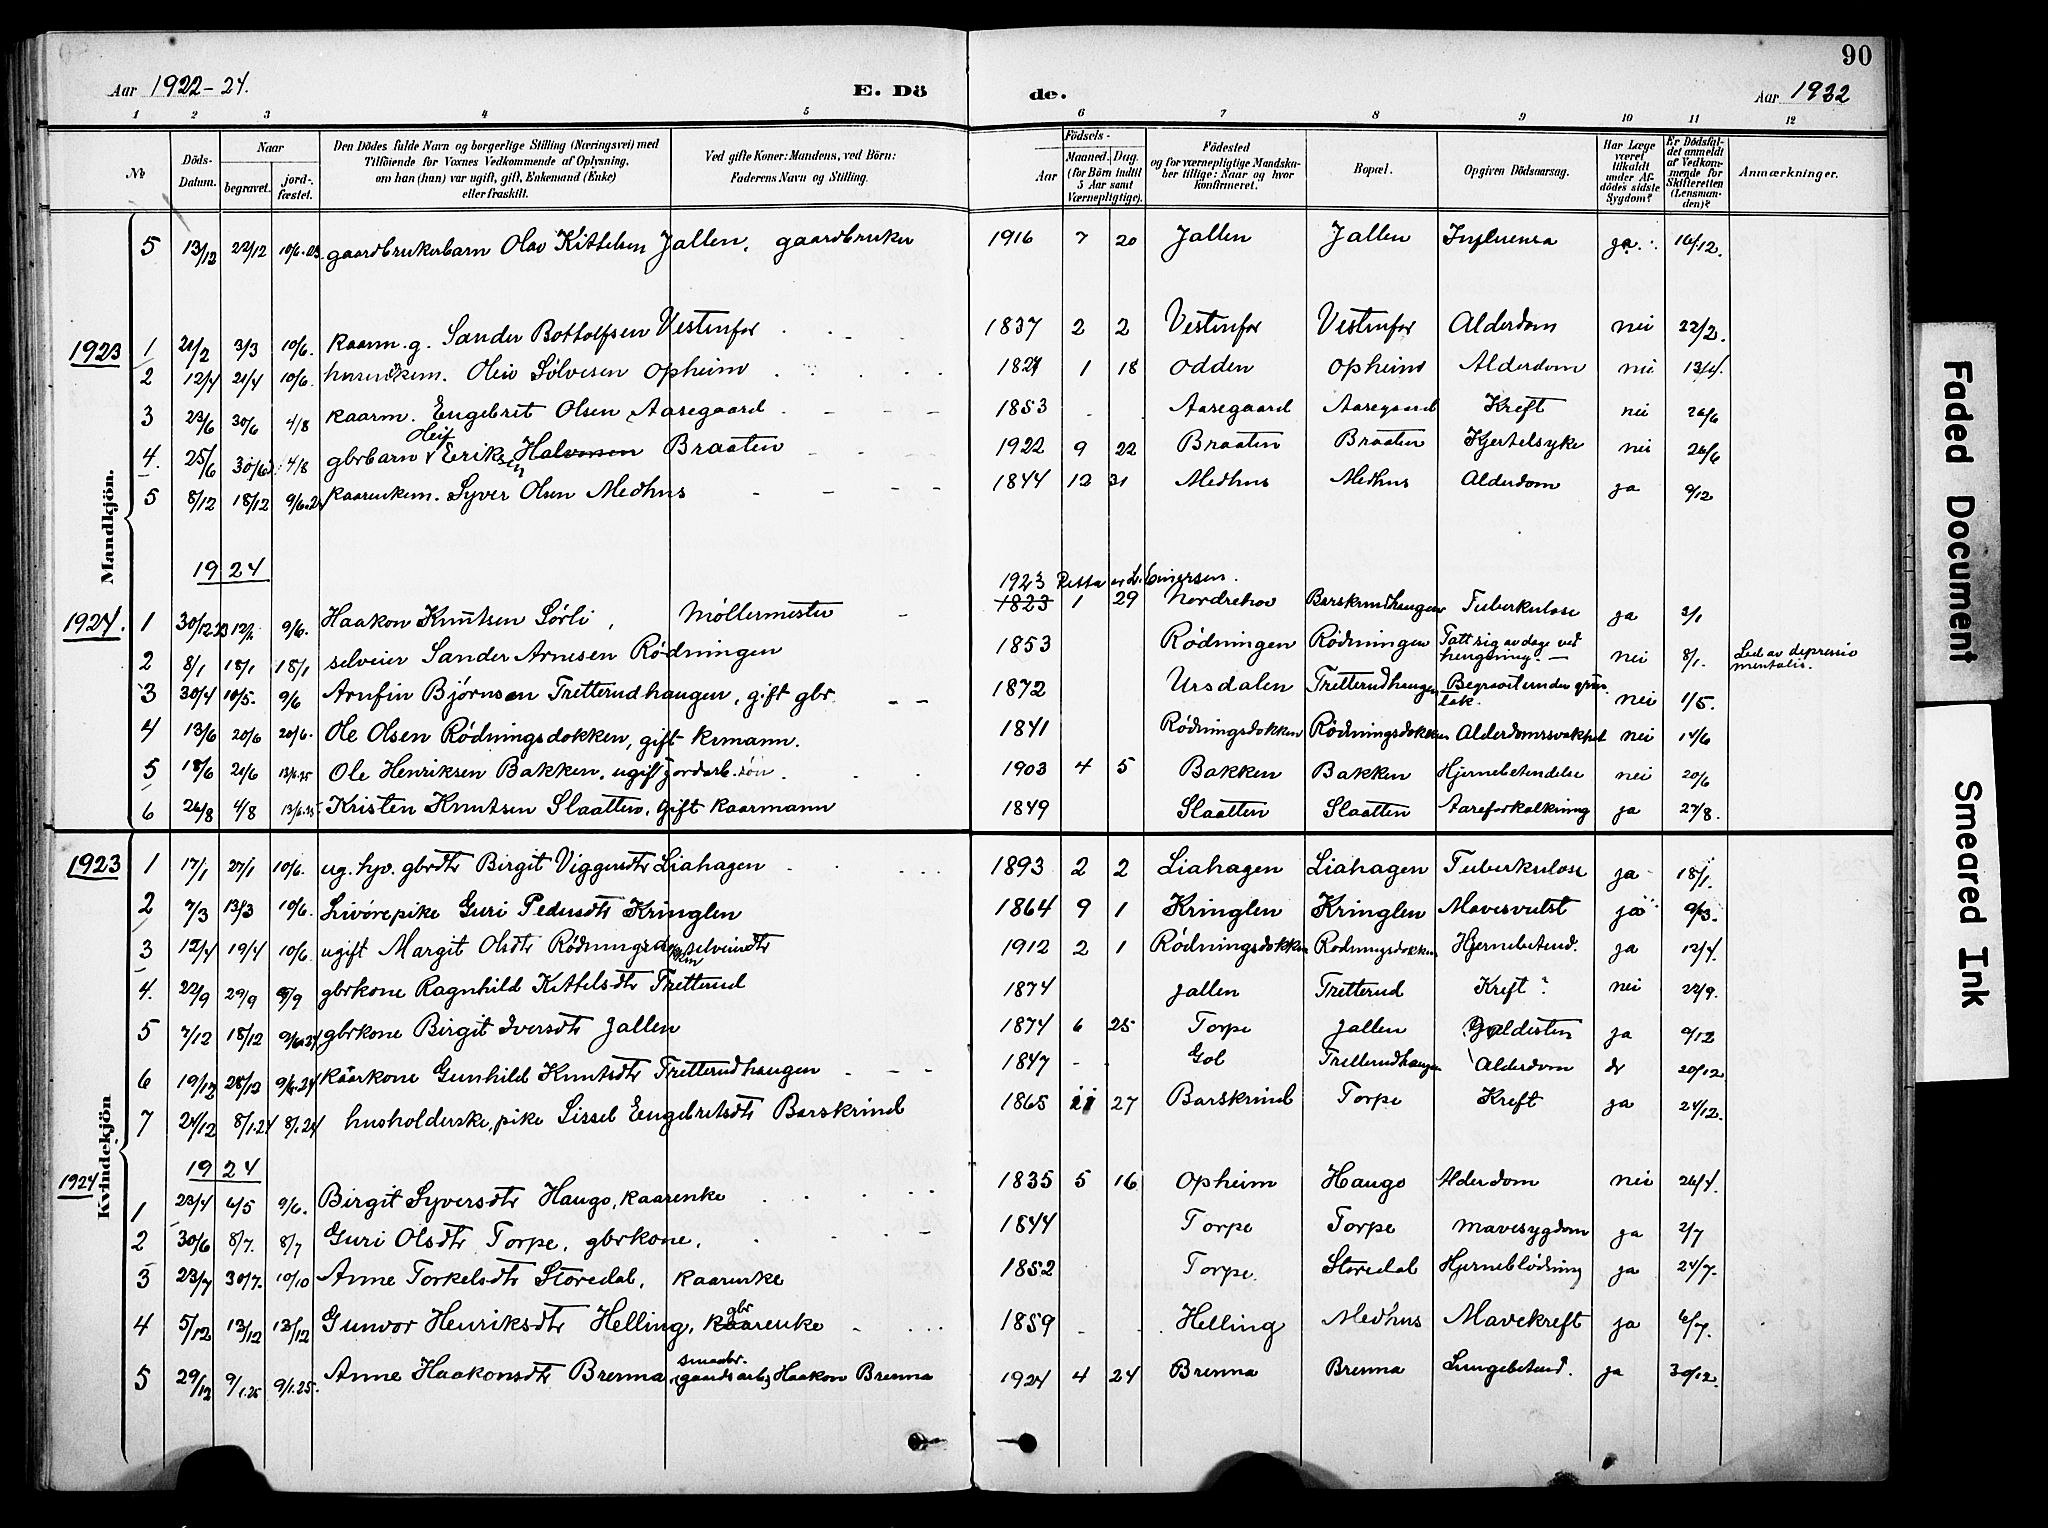 90
Aar 1922-24. E. Dö de. Aar 1922
1 2 3 4 5 6 7 8 9 10 11 12
№ Döds-Datum. Naar begravet. jord-fæstet. Den Dödes fulde Navn og borgerlige Stilling (Næringsvei) med Tilföiende for Voxnes Vedkommende af Oplysning, om han (hun) var ugift, gift, Enkemand (Enke) eller fraskilt. Ved gifte Koner: Mandens, ved Börn: Faderens Navn og Stilling. Födsels- Aar Maaned. Dag. (for Börn indtil 5 Aar samt Værnepligtige). Födested og for værnepligtige Mandskaber tillige: Naar og hvor konfirmeret. Bopæl. Opgiven Dödsaarsag. Har Læge været tilkaldt under Afdödes sidste Sygdom? Er Dödsfaldet anmeldt af Vedkommende for Skifteretten (Lensmanden)? Anmærkninger.
5 13/12 22/12 10/6.23. gaardbrukerbarn Olav Kittelsen Jallen, gaardbruker 1916 7 20 Jallen Jallen Influensa ja. 16/12.
Mandkjön.
1923 1 21/2 3/3 10/6. kaarm. g. Sander Bottolfsen Vestenfor 1837 2 2 Vestenfor Vestenfor Alderdom nei 22/2.
2 12/4 21/4 10/6. Olav Sølvesen Opheim 1 18 Odden Opheim Alderdom nei 13/4.
3 23/6 30/6 4/8 kaarm. Engebrit Olsen Aasegaard 1853 Aasegaard Aasegaard Kreft nei 26/6
4. 25/6 30/6 4/8 gbrbarn Leif Eriksen Halvorsen Braaten 1922 9 22 Braaten Braaten Kjertelsyke nei 26/6
5 8/12 18/12 9/6.24 kaarenkem. Syver Olsen Medhus 1844 12 31 Medhus Medhus Alderdom ja 9/12
1924
1923 Retta av L. Einersen.
1924. 1 30/12 23 12/1. 9/6. Haakon Knutsen Sørli, Möllermester 1823 1 29 Nordrehov Barskrindhaugen Tuberkulose ja 2/1
2 8/1 18/1 18/1 selveier Sander Arnesen Rödningen 1853 Rödningen Rödningen Tatt sig av dage ved hengning. nei 8/1. Led av depressio mentalis.
3 30/4 10/5. 9/6 Arnfin Bjørnsen Tretterudhaugen, gift gbr. 1872 Ursdalen Tretterudhaugen Begravet under nei 1/5.
4 13/6 20/6 20/6. Ole Olsen Rödningsdokken, gift krmann. 1841 Rödningsdokken Rödningsdokken Alderdomssvakhet nei 14/6
5 18/6 21/6 13/4.25 Ole Henriksen Bakken, ugift jordarb. sön 1903 4 5 Bakken Bakken Hjernebetendelse nei 20/6
6 26/8 4/8 13/6.25 Kristen Knutsen Slaatten, gift kaarmann 1849 Slaatten Slaatten Aareforkalkning ja 27/8.
Kvindekjön
1923 1 17/1 27/1 10/6. ug. hp. gbrdtr Birgit Viggersdtr Liahagen 1893 2 2 Liahagen Liahagen Tuberkulose ja 18/1.
2 7/3 13/3 10/6. Livörepike Guri Pedersdtr Kringlen 1864 9 1 Kringlen Kringlen Mavesvulst ja 9/3.
3 12/4 19/4 10/6. ugift Margit Olsdtr Rödningsdokken selveierdtr 1912 2 1 Rödningsdokken Rodningsdokken Hjernebetend. ja 12/4.
4. 22/9 29/9 /9 gbrkone Ragnhild Kittelsdtr Tretterud 1874 Jallen Tretterud Kreft? nei 22/9.
5 7/12 18/12 9/6.24 gbrkone Birgit Iversdtr Jallen 1874 6 25 Torpe Jallen Galdesten ja 9/12
6 19/12 28/12 9/6.24 kaarkone Gunhild Knutsdtr Tretterudhaugen 1847 Gol Tretterudhaugen Alderdom 20/12
7 24/12 8/1.24 8/1.24 husholderske, pike Sissel Engebretsdtr Barskrind 1865 11 27 Barskrind Torpe Kreft ja 24/12.
1924
1924 1 23/4 6/5 9/6. Birgit Syversdtr Haugo, kaarenke 1835 5 16 Opheim Haugo Alderdom nei 26/4.
2 30/6 8/7. 8/7 Guri Olsdtr Torpe, gbrkone, 1844 Torpe Torpe Mavesygdom ja 2/7
3 23/7 30/7. 10/10 Anne Torkelsdtr Storedal, kaarenke 1852 Torpe. Storedal Hjerneblödning ja 24/7.
4 5/12 13/12 13/12 Gunvor Henriksdtr Helling, gbr kaarenke 1859 Helling Medhus Mavekreft ja 6/7.
5 29/12 9/1.25 9/1.25. Anne Haakonsdtr Brenna smaabr. (gaardsarb.) Haakon Brenna 1924 4 24 Brenna Brenna Lungebetend. ja 30/12.
Faded Document
Smeared Ink